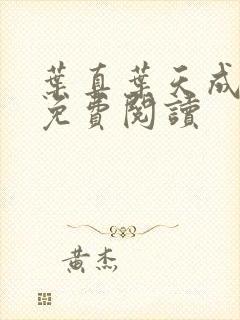 葉真葉天成
免費閱讀
黃杰